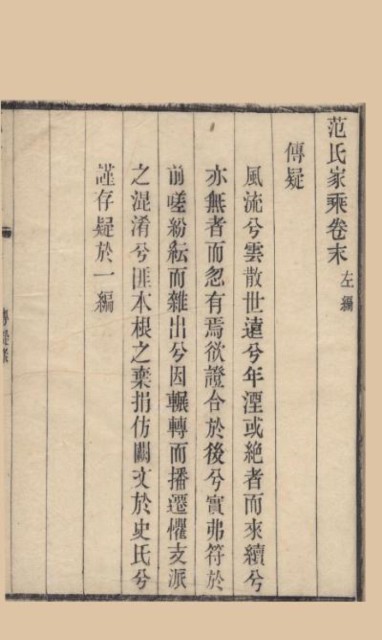 范氏家乘卷末 左編
傳疑
風流兮雲散世遠兮年湮或絶者而來續兮
亦無者而忽有焉欲證合於後兮實弗符於
前嗟紛紜而雜出兮因輾轉而播遷懼支派
之混淆兮匪本根之棄捐仿闕文於史氏兮
謹存疑於一編